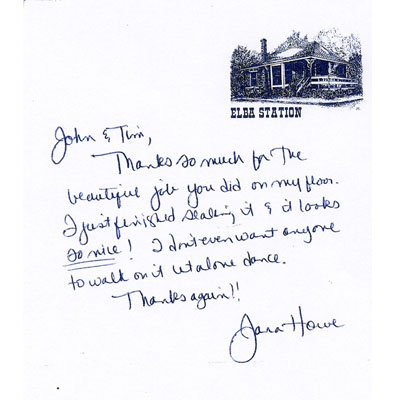 ELBA STATION
John & Tim,
Thanks so much for the
beautiful job you did on my floor.
I just finished sealing it & it looks
so nice! I don't even want anyone
to walk on it let alone dance.
Thanks again!!
Jara Howe